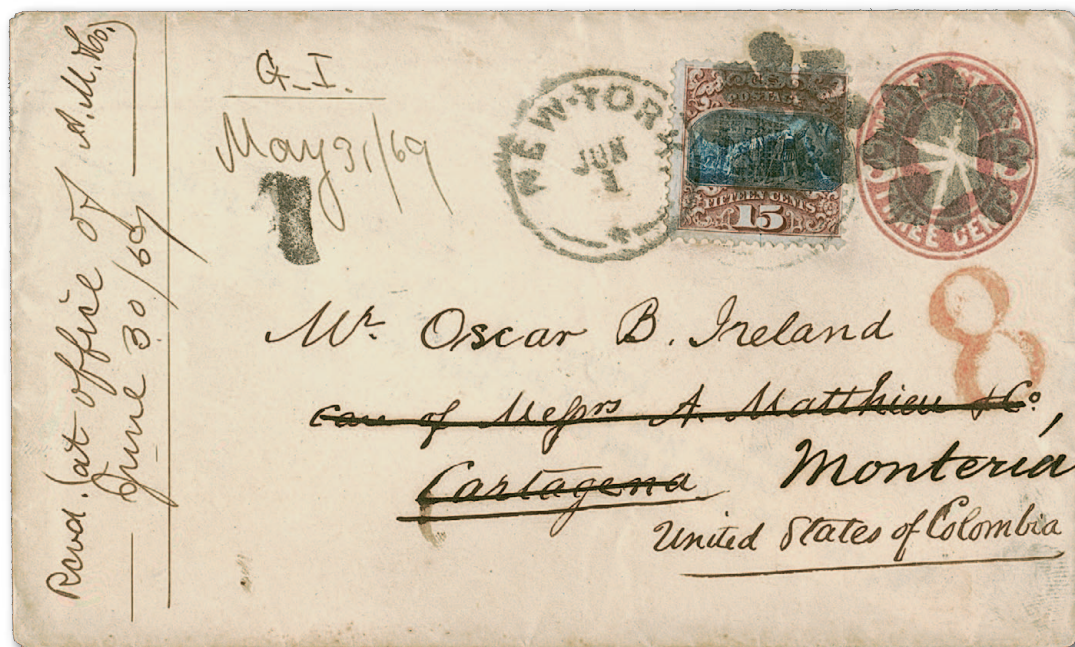 Recvd. (at office of A. M. &Co.)
June 30/69
G. I.
May 31/69
NEW-YORK
JUN
1
U.S.
POSTAGE
FIFTEEN CENTS
15
THREE CENTS
1
8
Mr. Oscar B. Ireland
care of Messrs A. Matthieu & Co,
Cartagena Monteria
United States of Colombia